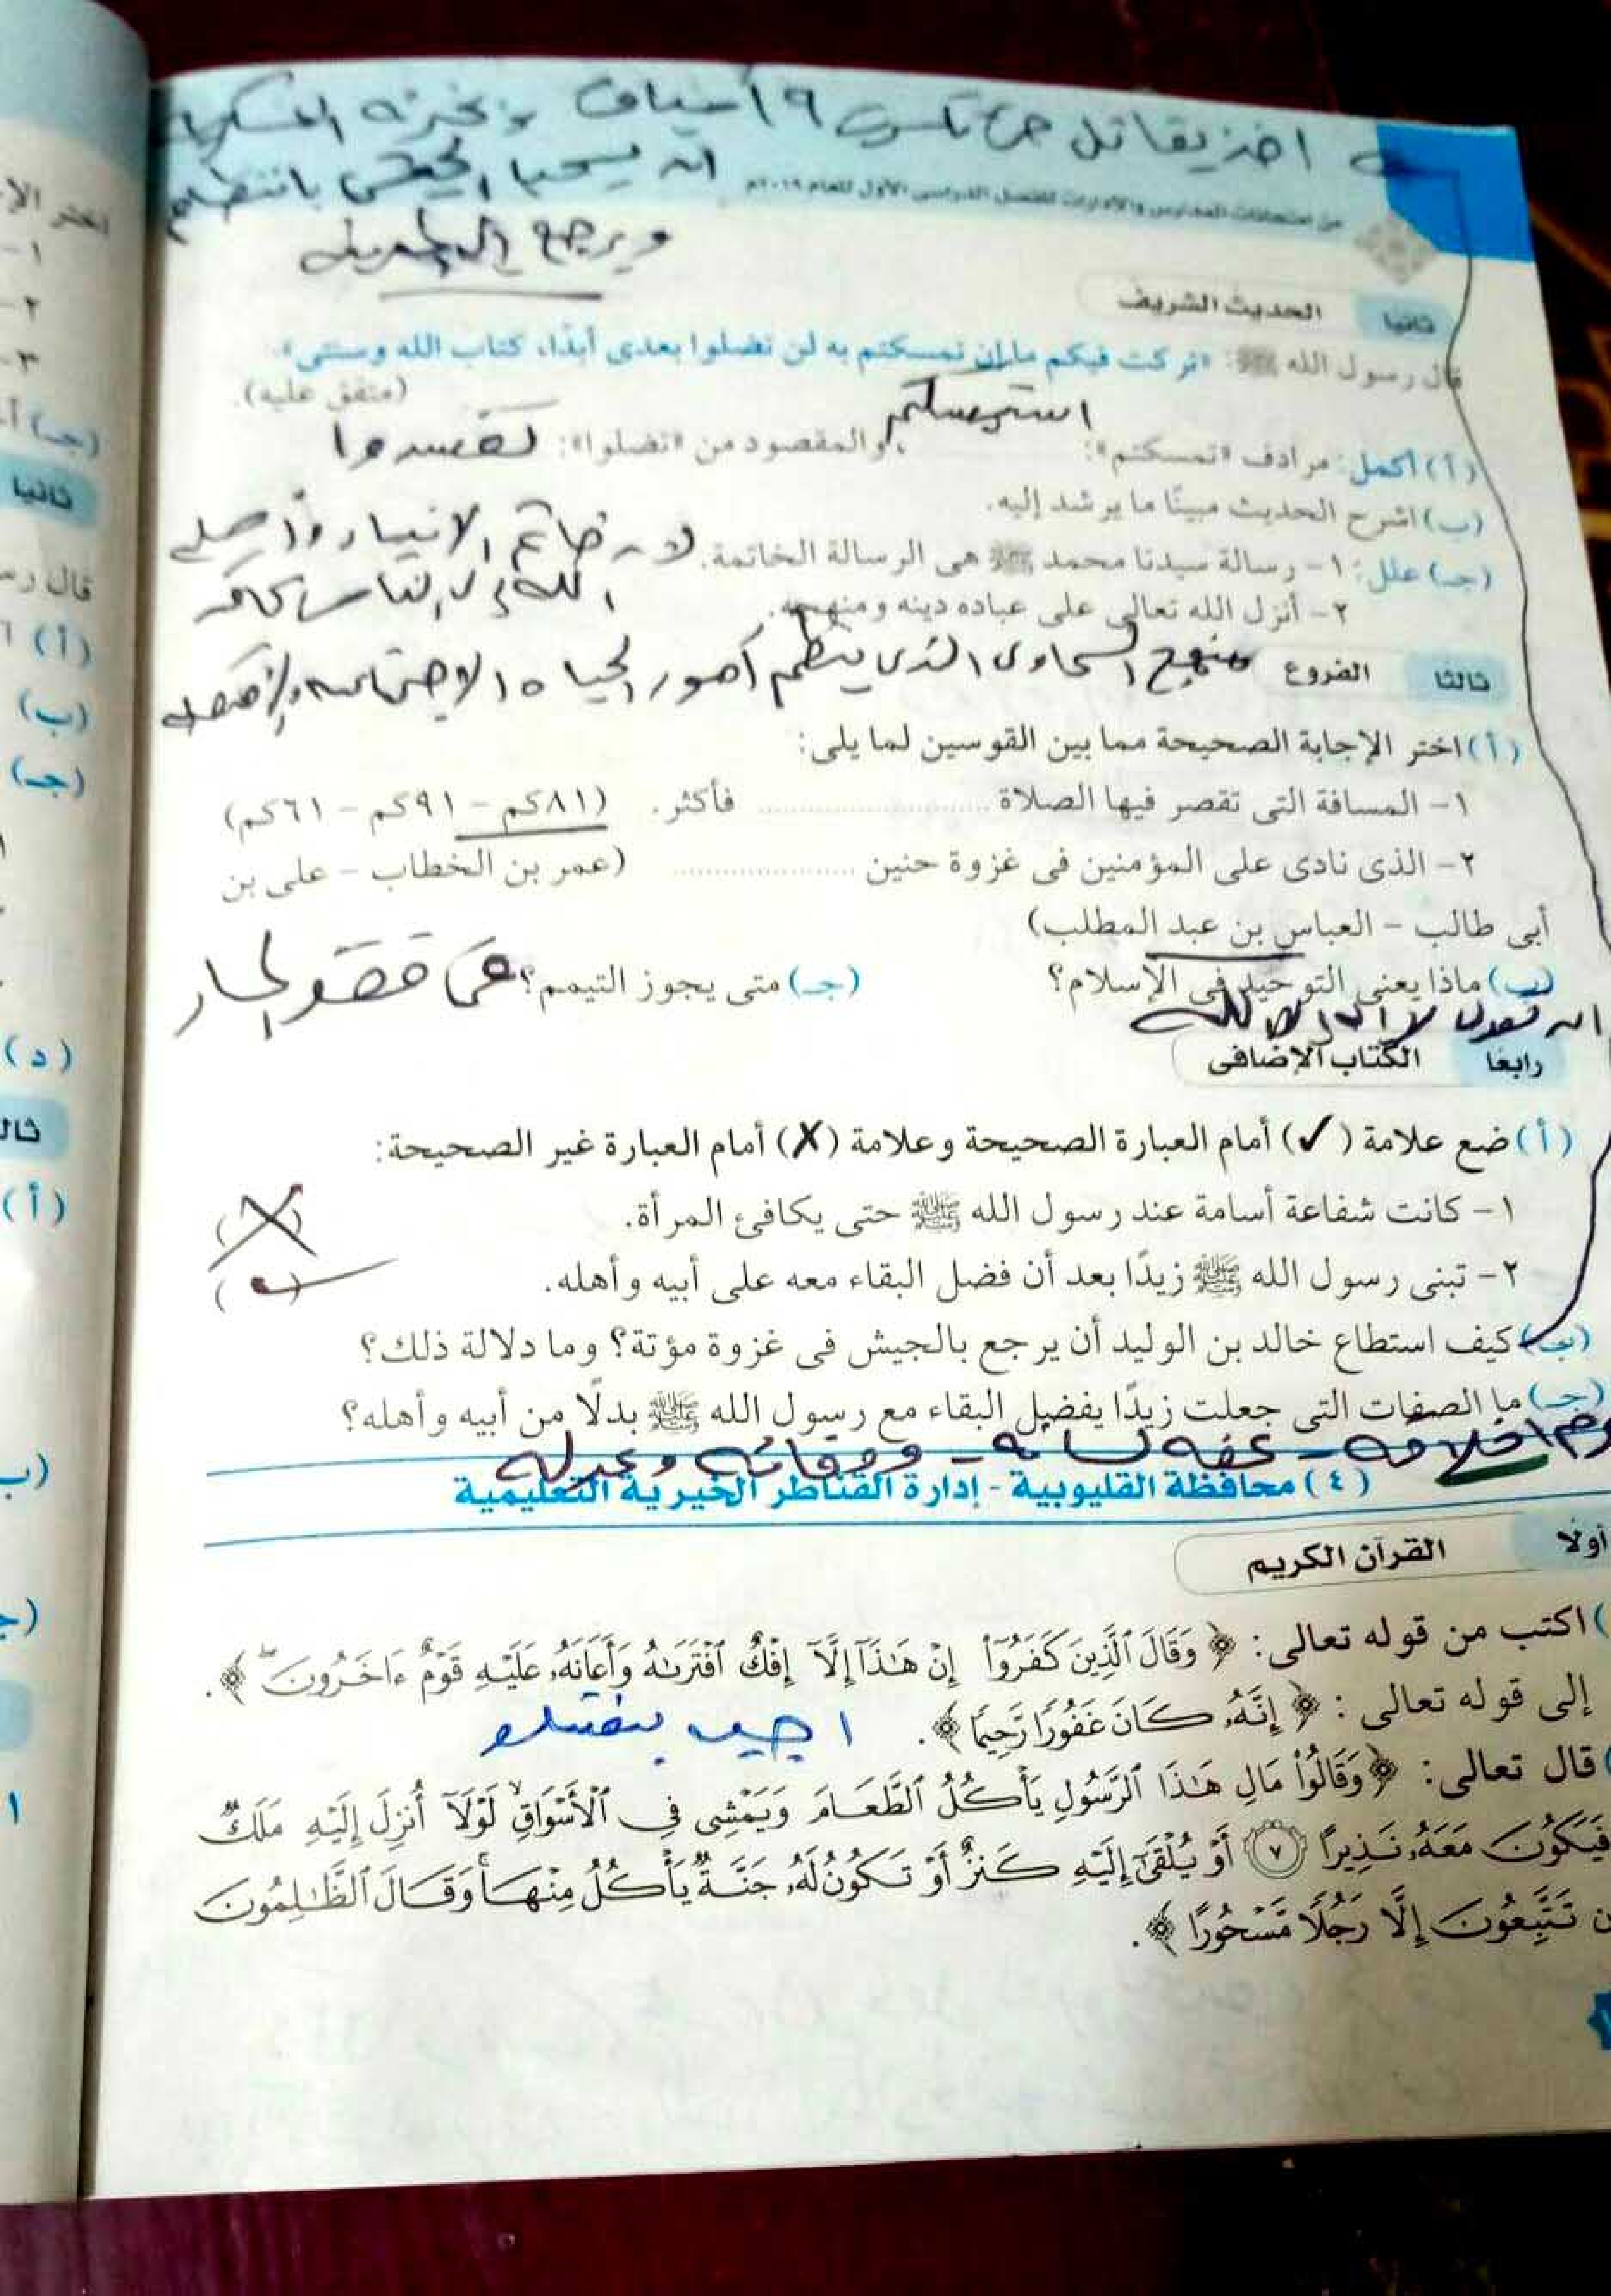 اخذ يقاتل حتى تكسرت ٩ أسياف
ان يسحب الجيش بانتظام
من امتحانات المدارس والإدارات للفصل الدراسى الأول للعام ٢٠١٩م
ويرجع إلى المدينة
ثانيا الحديث الشريف
قال رسول الله ﷺ: «تركت فيكم ما إن تمسكتم به لن تضلوا بعدى أبدًا، كتاب الله وسنتى».
(متفق عليه).
استمسكتم
(أ) أكمل: مرادف «تمسكتم»: ، والمقصود من «تضلوا»:
(ب) اشرح الحديث مبينًا ما يرشد إليه.
(جـ) علل: ١- رسالة سيدنا محمد ﷺ هى الرسالة الخاتمة. خاتم الانبياء وأرسله
الله إلى الناس كافة
٢- أنزل الله تعالى على عباده دينه ومنهجه.
ثالثا الفروع منهج السماوى الذى ينظم أمور الحياه الاجتماعيه
(أ) اختر الإجابة الصحيحة مما بين القوسين لما يلى:
١- المسافة التى تقصر فيها الصلاة .................... فأكثر. (٨١كم - ٩١كم - ٦١كم)
٢- الذى نادى على المؤمنين فى غزوة حنين .................... (عمر بن الخطاب - على بن
أبى طالب - العباس بن عبد المطلب)
(ب) ماذا يعنى التوحيد فى الإسلام؟ (جـ) متى يجوز التيمم؟
لا اله الا الله
رابعا الكتاب الإضافى
(أ) ضع علامة (✓) أمام العبارة الصحيحة وعلامة (✗) أمام العبارة غير الصحيحة:
١- كانت شفاعة أسامة عند رسول الله ﷺ حتى يكافئ المرأة. (✗)
٢- تبنى رسول الله ﷺ زيدًا بعد أن فضل البقاء معه على أبيه وأهله. (✓)
(ب) كيف استطاع خالد بن الوليد أن يرجع بالجيش فى غزوة مؤتة؟ وما دلالة ذلك؟
(جـ) ما الصفات التى جعلت زيدًا يفضل البقاء مع رسول الله ﷺ بدلًا من أبيه وأهله؟
اخلاقه - عفه لسانه - ووفائه وعدله
(٤) محافظة القليوبية - إدارة القناطر الخيرية التعليمية
أولا القرآن الكريم
) اكتب من قوله تعالى: ﴿وَقَالَ ٱلَّذِينَ كَفَرُوٓا۟ إِنْ هَٰذَآ إِلَّآ إِفْكٌ ٱفْتَرَىٰهُ وَأَعَانَهُۥ عَلَيْهِ قَوْمٌ ءَاخَرُونَ﴾.
إلى قوله تعالى: ﴿إِنَّهُۥ كَانَ غَفُورًا رَّحِيمًا﴾. اجب بنفسك
) قال تعالى: ﴿وَقَالُوا۟ مَالِ هَٰذَا ٱلرَّسُولِ يَأْكُلُ ٱلطَّعَامَ وَيَمْشِى فِى ٱلْأَسْوَاقِ ۙ لَوْلَآ أُنزِلَ إِلَيْهِ مَلَكٌ
فَيَكُونَ مَعَهُۥ نَذِيرًا ٧ أَوْ يُلْقَىٰٓ إِلَيْهِ كَنزٌ أَوْ تَكُونُ لَهُۥ جَنَّةٌ يَأْكُلُ مِنْهَا ۚ وَقَالَ ٱلظَّٰلِمُونَ
ن تَتَّبِعُونَ إِلَّا رَجُلًا مَّسْحُورًا﴾.